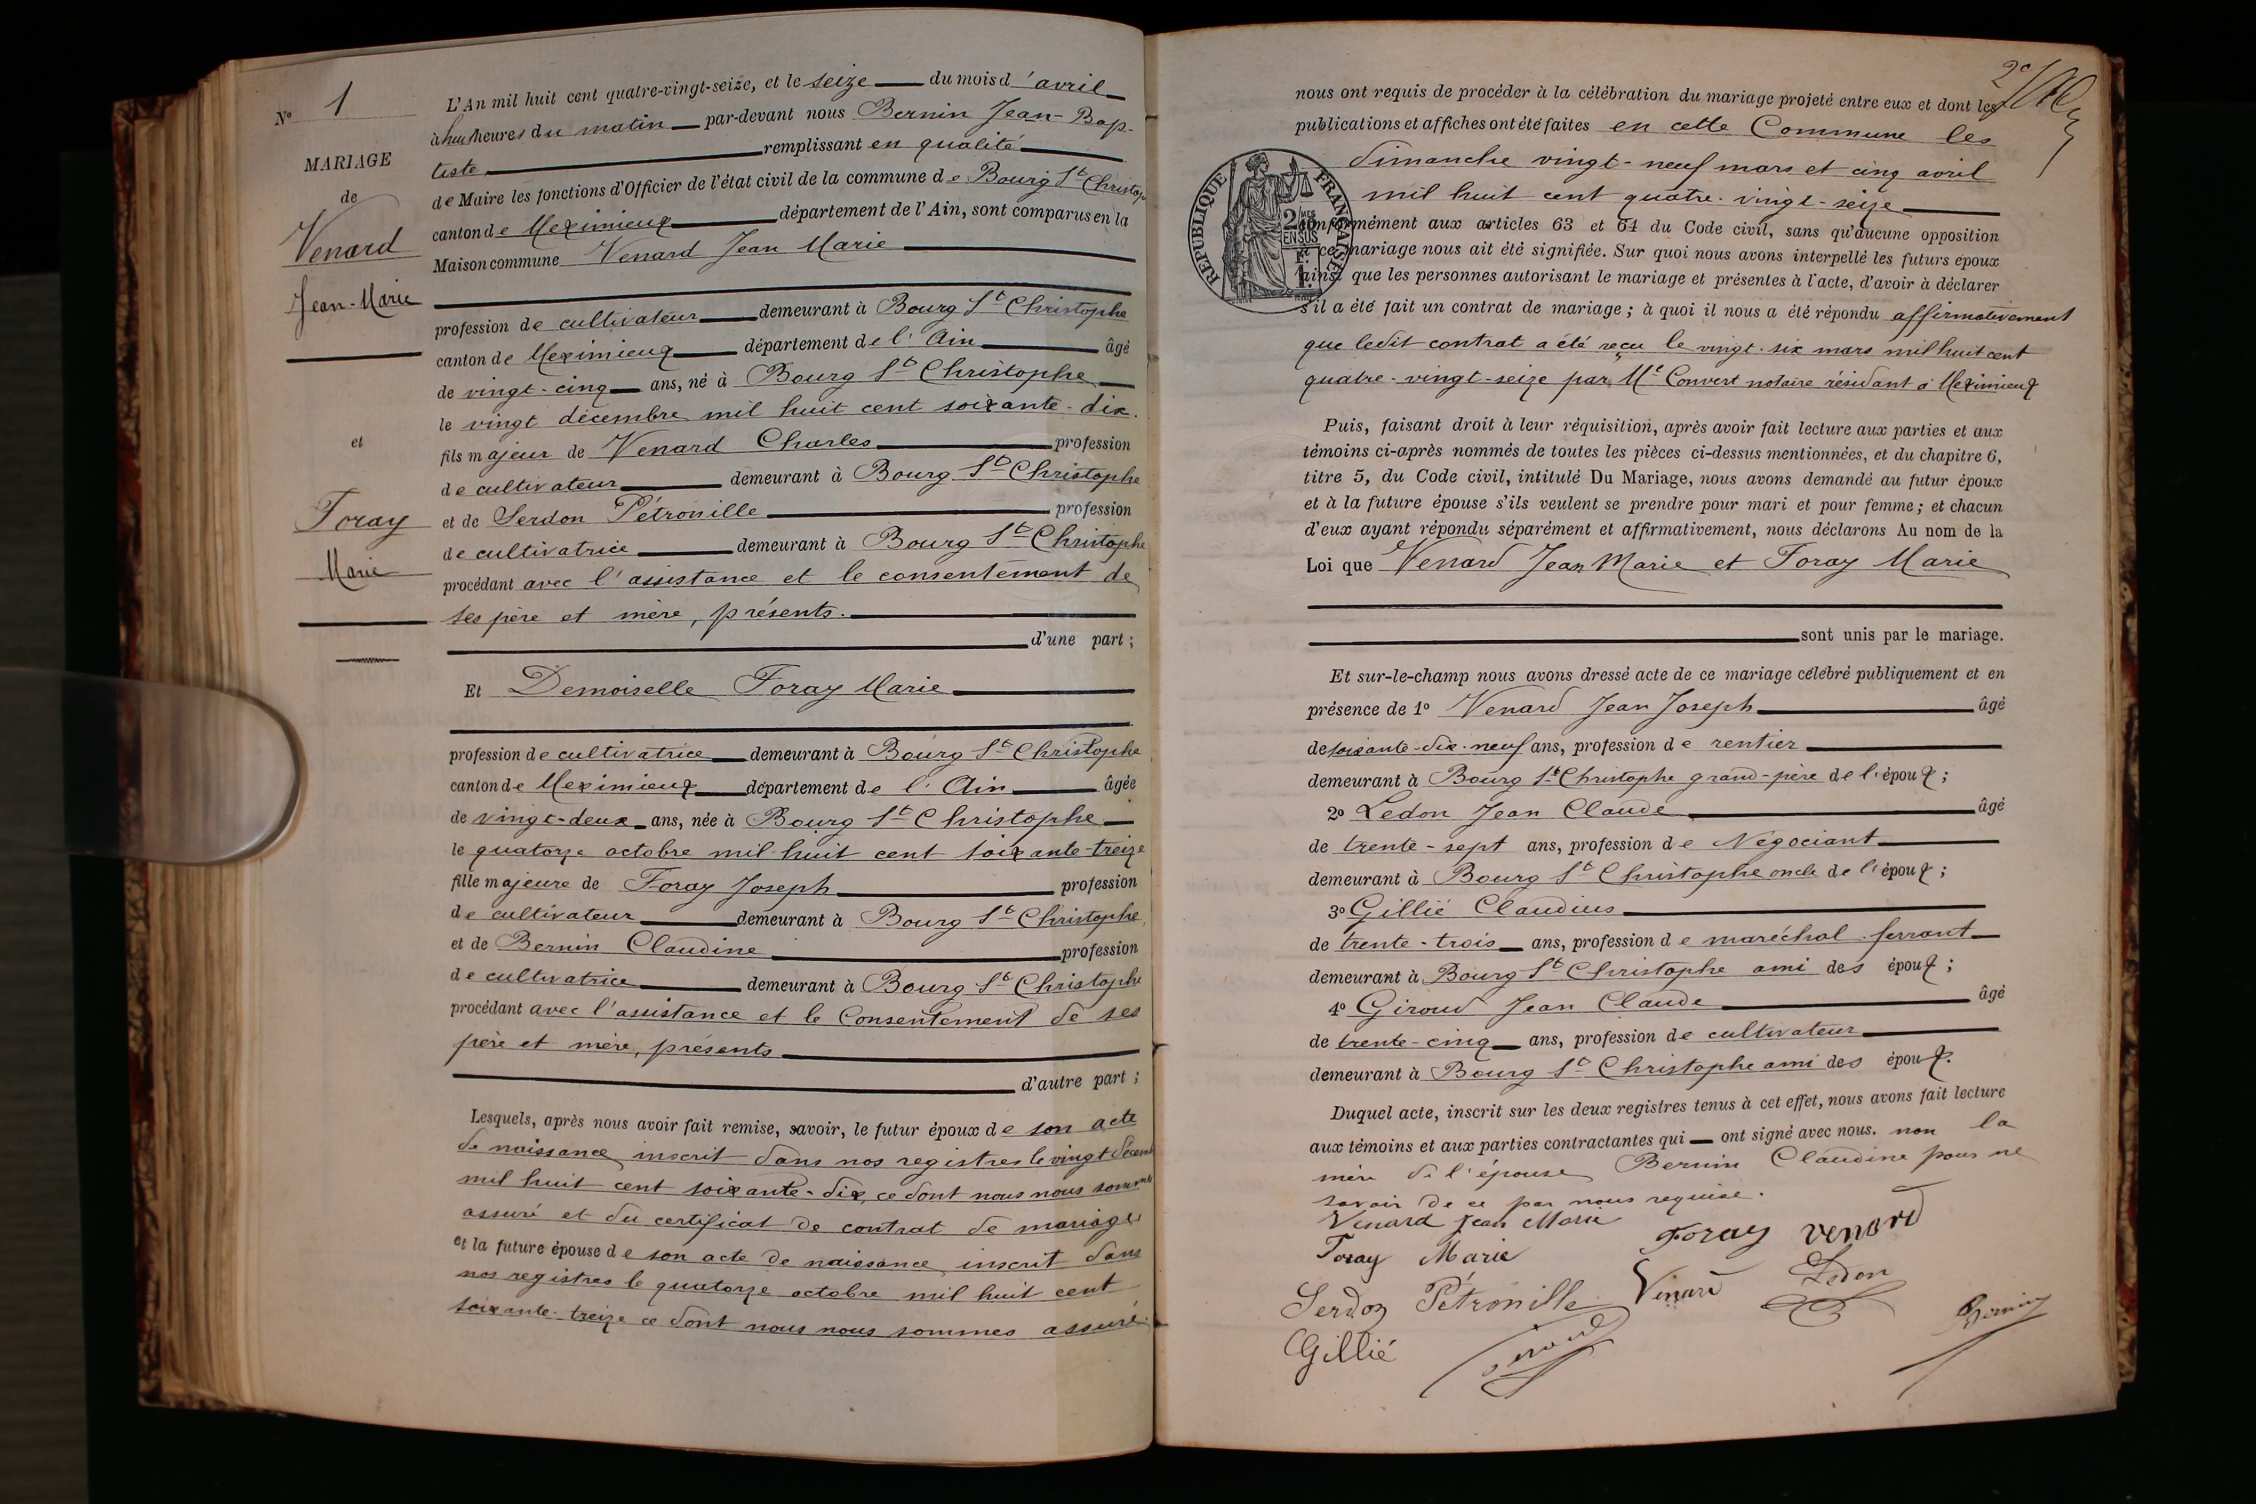 N° 1
MARIAGE
de
Venard
Jean-Marie
et
Foray
Marie
L'An mil huit cent quatre-vingt-seize, et le seize du mois d'avril
à huit heures du matin par-devant nous Bernin Jean-Bap-
tiste remplissant en qualité
de Maire les fonctions d'Officier de l'état civil de la commune de Bourg St Christophe
canton de Meximieux département de l'Ain, sont comparus en la
Maison commune Venard Jean Marie
profession de cultivateur demeurant à Bourg St Christophe
canton de Meximieux département de l'Ain âgé
de vingt-cinq ans, né à Bourg St Christophe
le vingt décembre mil huit cent soixante-dix.
fils majeur de Venard Charles profession
de cultivateur demeurant à Bourg St Christophe
et de Serdon Pétronille profession
de cultivatrice demeurant à Bourg St Christophe
procédant avec l'assistance et le consentement de
ses père et mère, présents.
d'une part;
Et Demoiselle Foray Marie
profession de cultivatrice demeurant à Bourg St Christophe
canton de Meximieux département de l'Ain âgée
de vingt-deux ans, née à Bourg St Christophe
le quatorze octobre mil huit cent soixante-treize
fille majeure de Foray Joseph profession
de cultivateur demeurant à Bourg St Christophe
et de Bernin Claudine profession
de cultivatrice demeurant à Bourg St Christophe
procédant avec l'assistance et le Consentement de ses
père et mère, présents
d'autre part;
Lesquels, après nous avoir fait remise, savoir, le futur époux de son acte
de naissance inscrit dans nos registres le vingt décemb
mil huit cent soixante-dix, ce dont nous nous sommes
assuré et du certificat de contrat de mariage
et la future épouse de son acte de naissance inscrit dans
nos registres le quatorze octobre mil huit cent
soixante-treize ce dont nous nous sommes assuré.
2e
nous ont requis de procéder à la célébration du mariage projeté entre eux et dont les
publications et affiches ont été faites en cette Commune les
dimanche vingt-neuf mars et cinq avril
mil huit cent quatre-vingt-seize
RÉPUBLIQUE FRANÇAISE
conformément aux articles 63 et 64 du Code civil, sans qu'aucune opposition
à ce mariage nous ait été signifiée. Sur quoi nous avons interpellé les futurs époux
ainsi que les personnes autorisant le mariage et présentes à l'acte, d'avoir à déclarer
s'il a été fait un contrat de mariage; à quoi il nous a été répondu affirmativement
que ledit contrat a été reçu le vingt-six mars mil huit cent
quatre-vingt-seize par Me Convert notaire résidant à Meximieux
Puis, faisant droit à leur réquisition, après avoir fait lecture aux parties et aux
témoins ci-après nommés de toutes les pièces ci-dessus mentionnées, et du chapitre 6,
titre 5, du Code civil, intitulé Du Mariage, nous avons demandé au futur époux
et à la future épouse s'ils veulent se prendre pour mari et pour femme; et chacun
d'eux ayant répondu séparément et affirmativement, nous déclarons Au nom de la
Loi que Venard Jean Marie et Foray Marie
sont unis par le mariage.
Et sur-le-champ nous avons dressé acte de ce mariage célébré publiquement et en
présence de 1° Venard Jean Joseph âgé
de soixante-dix-neuf ans, profession de rentier
demeurant à Bourg St Christophe grand-père de l'époux;
2° Ledon Jean Claude âgé
de trente-sept ans, profession de Négociant
demeurant à Bourg St Christophe oncle de l'époux;
3° Gillié Claudius
de trente-trois ans, profession de maréchal-ferrant
demeurant à Bourg St Christophe ami des époux;
4° Giroud Jean Claude âgé
de trente-cinq ans, profession de cultivateur
demeurant à Bourg St Christophe ami des époux.
Duquel acte, inscrit sur les deux registres tenus à cet effet, nous avons fait lecture
aux témoins et aux parties contractantes qui ont signé avec nous. non la
mère de l'épouse Bernin Claudine pour ne
savoir de ce par nous requise.
Venard Jean Marie
Foray Marie Foray Venard
Serdon Pétronille Venard Ledon
Gillié Giroud Bernin